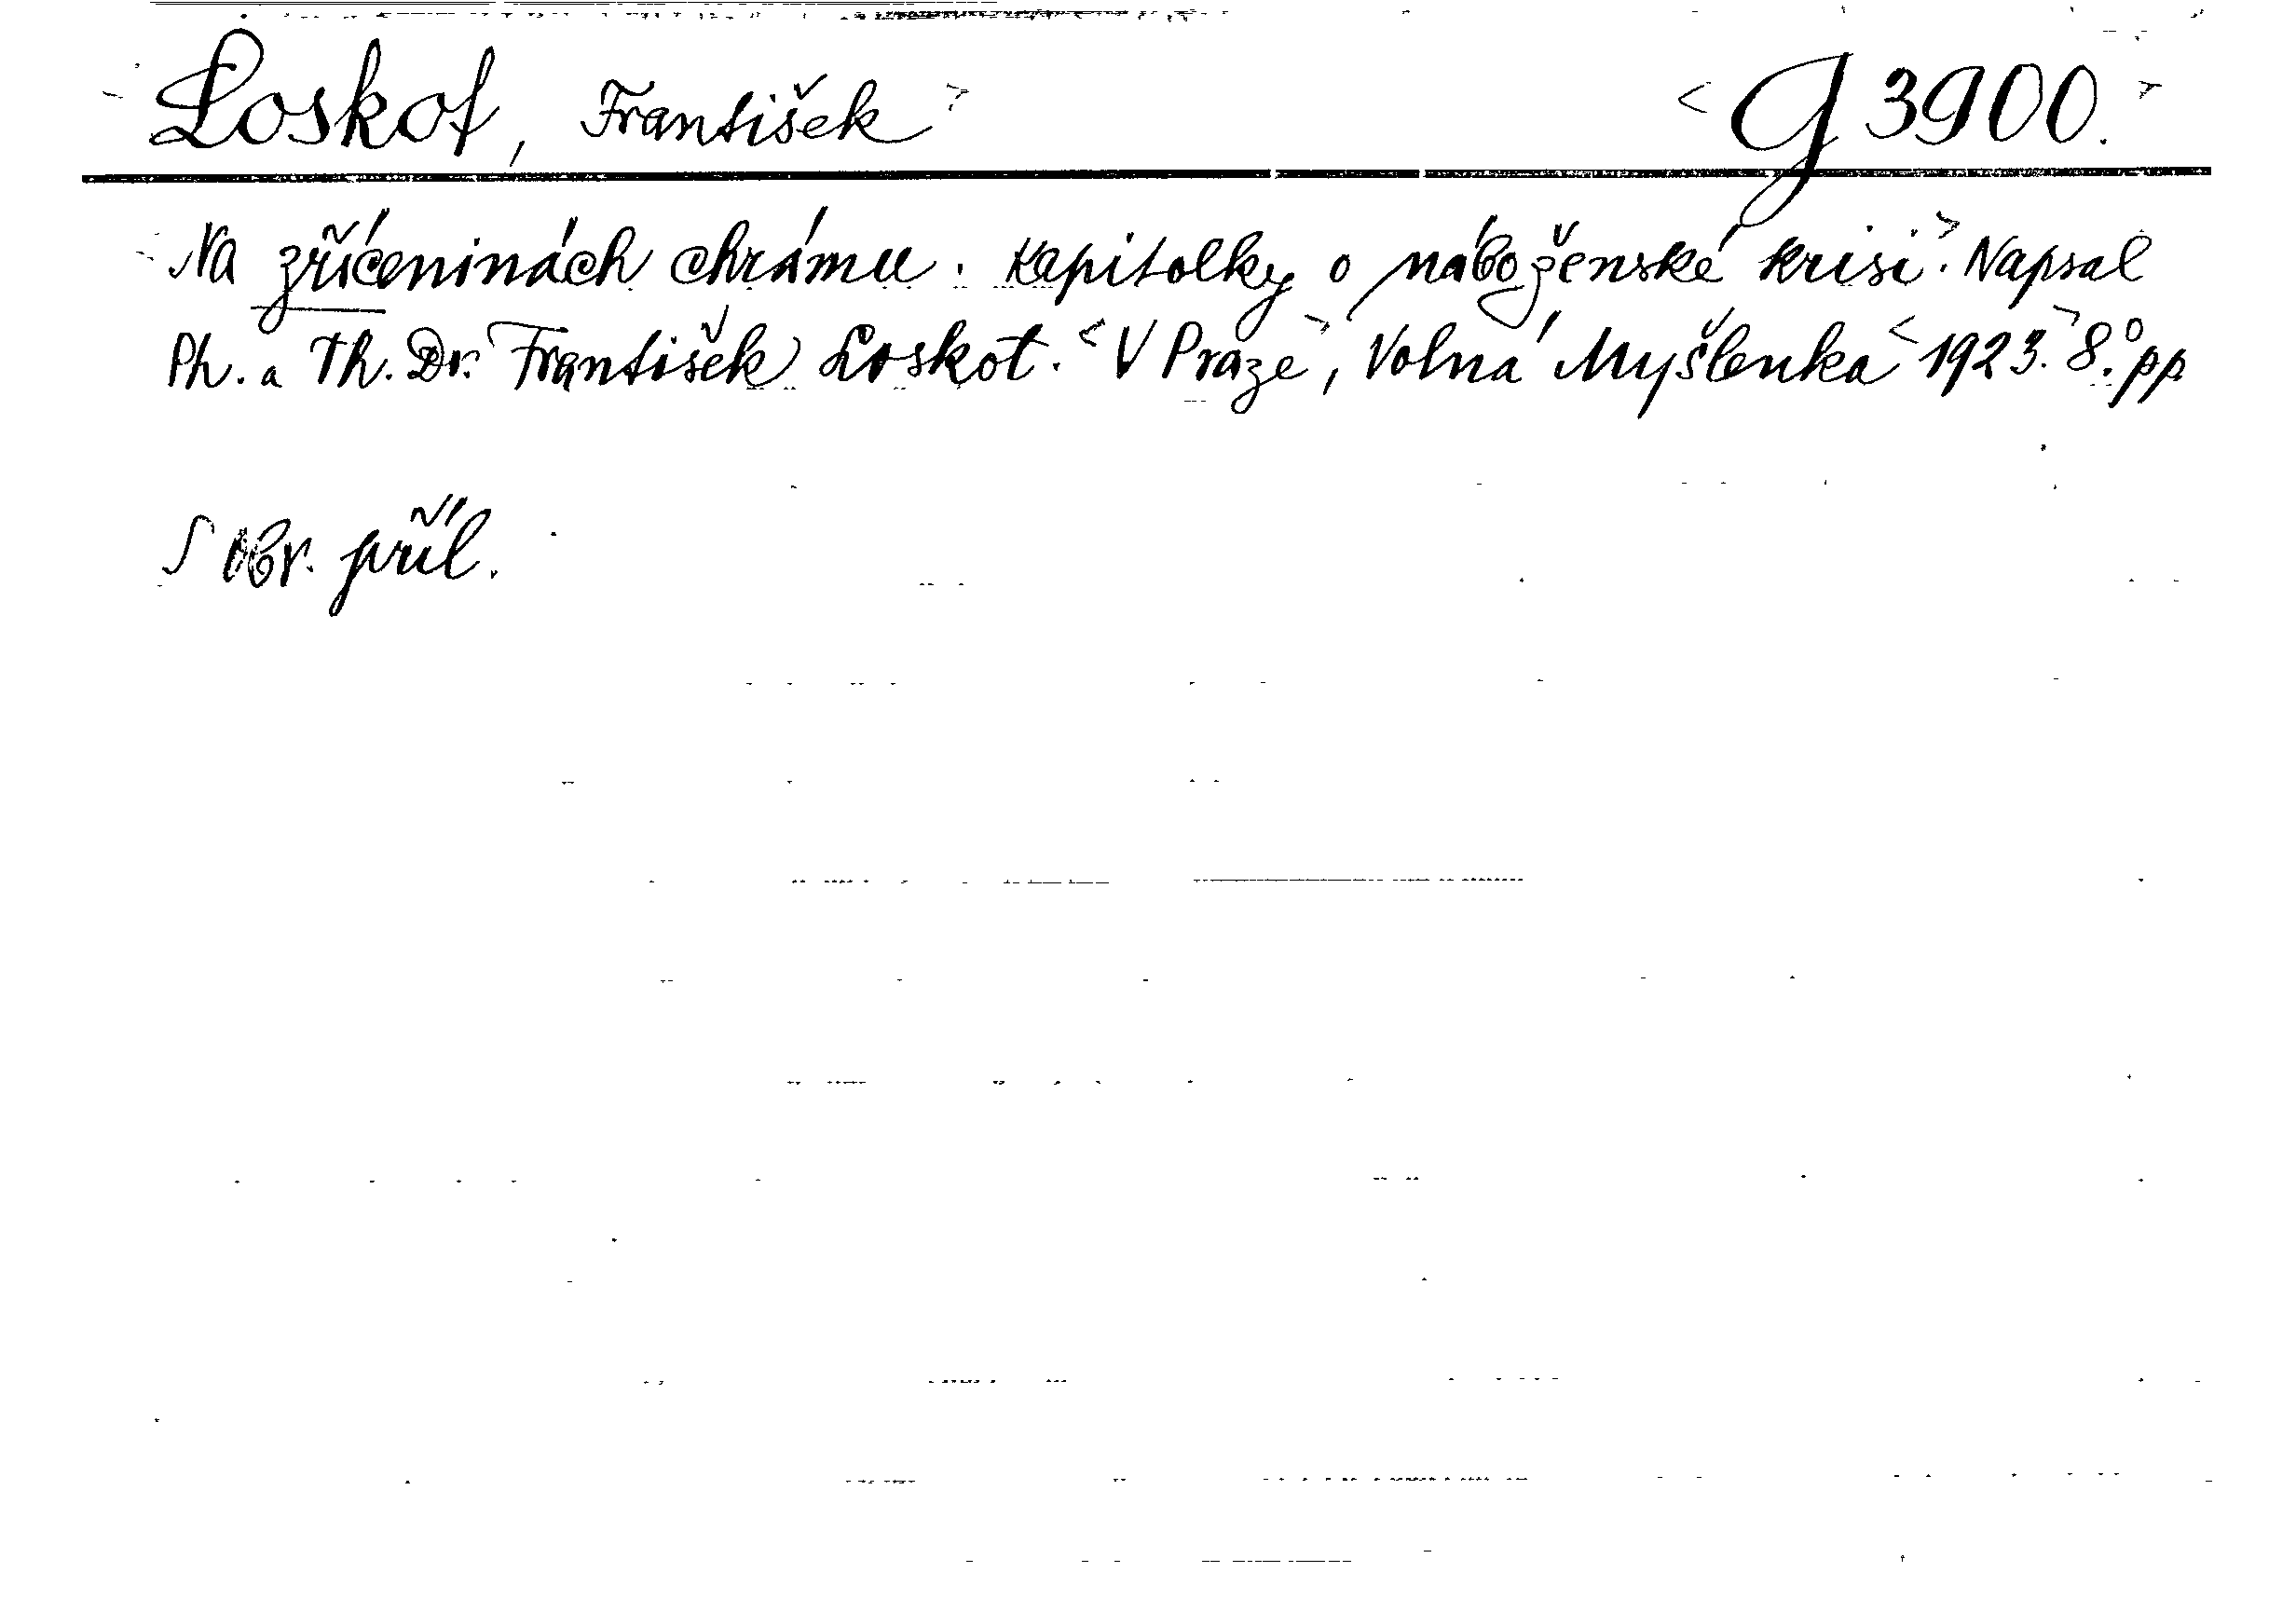 Loskot, František> <G 3900.>
Na zříceninách chrámu. Kapitolky o náboženské krisi.> Napsal
Ph. a Th. Dr. František Loskot. <V Praze>, Volná Myšlenka <1923.> 8.° pp
S obr. příl.